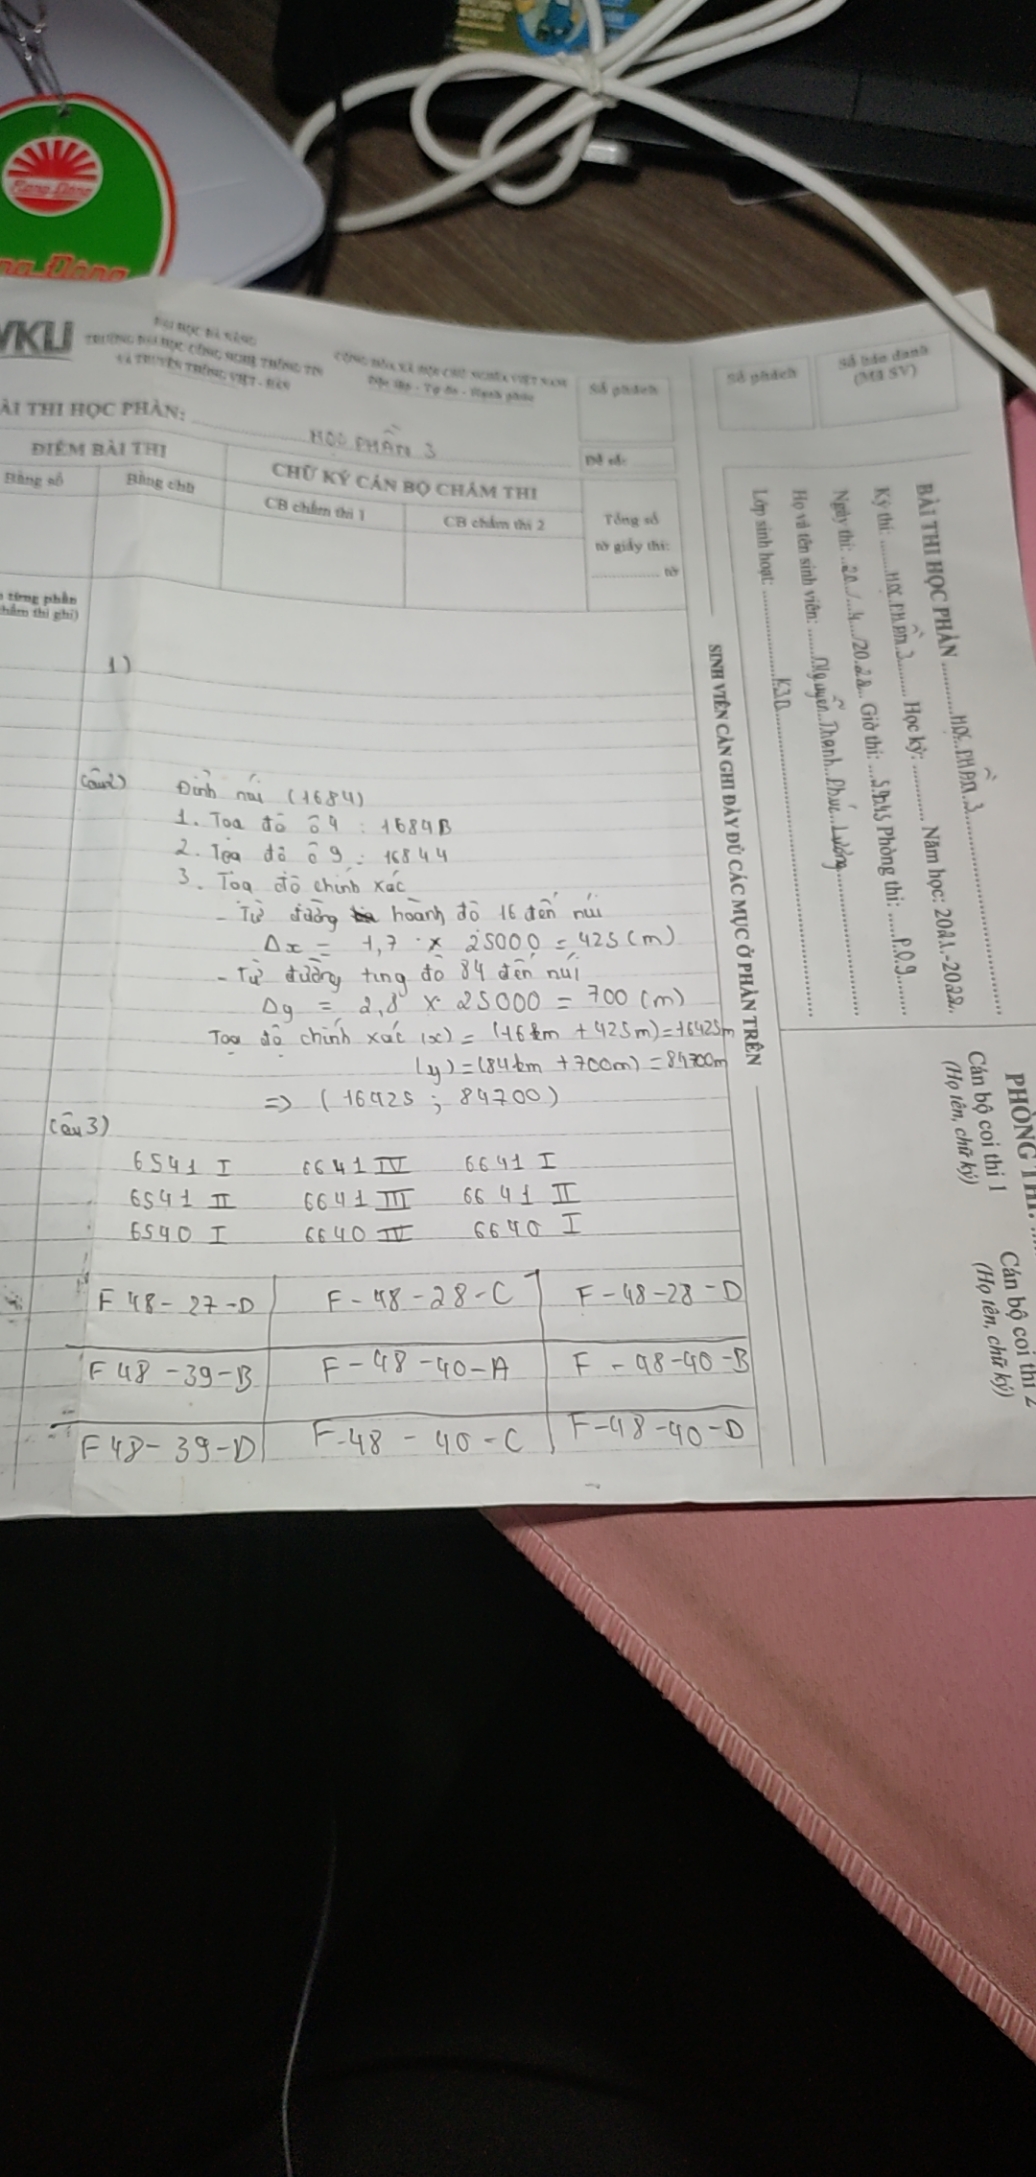 Rạng Đông
ng Đông
VKU
ĐẠI HỌC ĐÀ NẴNG
TRƯỜNG ĐẠI HỌC CÔNG NGHỆ THÔNG TIN
VÀ TRUYỀN THÔNG VIỆT - HÀN
CỘNG HÒA XÃ HỘI CHỦ NGHĨA VIỆT NAM
Độc lập - Tự do - Hạnh phúc
Số phách
ÀI THI HỌC PHẦN: HỌC PHẦN 3
Đề số:
ĐIỂM BÀI THI
CHỮ KÝ CÁN BỘ CHẤM THI
Bằng số
Bằng chữ
CB chấm thi 1
CB chấm thi 2
Tổng số
tờ giấy thi:
............ tờ
từng phần
chấm thi ghi)
1)
Câu 2) Đỉnh núi (1684)
1. Toa đô ô 4 : 1684B
2. Tọa đô ô 9 : 16844
3. Tọa đô chính xác
- Từ đường hoành đô 16 đến núi
Δx = 1,7 x 25000 = 425 (m)
- Từ đường tung đô 84 đến núi
Δy = 2,8 x 25000 = 700 (m)
Tọa đô chính xác (x) = (16km + 425m) = 16425m
(y) = (84km + 700m) = 84700m
=> (16425 ; 84700)
Câu 3)
6541 I 6641 IV 6641 I
6541 II 6641 III 6641 II
6540 I 6640 IV 6640 I
F 48 - 27 - D F - 48 - 28 - C F - 48 - 28 - D
F 48 - 39 - B F - 48 - 40 - A F - 48 - 40 - B
F 48 - 39 - D F - 48 - 40 - C F - 48 - 40 - D
Số phách
Số báo danh
(Mã SV)
BÀI THI HỌC PHẦN HỌC PHẦN 3
Kỳ thi: HỌC PHẦN 3 Học kỳ: ............ Năm học: 2021-2022
Ngày thi: 20/4/2022 Giờ thi: 9h45 Phòng thi: P.09
Họ và tên sinh viên: Nguyễn Thanh Phúc Lường
Lớp sinh hoạt: K3D
SINH VIÊN CẦN GHI ĐẦY ĐỦ CÁC MỤC Ở PHẦN TRÊN
PHÒNG THI:
Cán bộ coi thi 1
(Họ tên, chữ ký)
Cán bộ coi thi 2
(Họ tên, chữ ký)